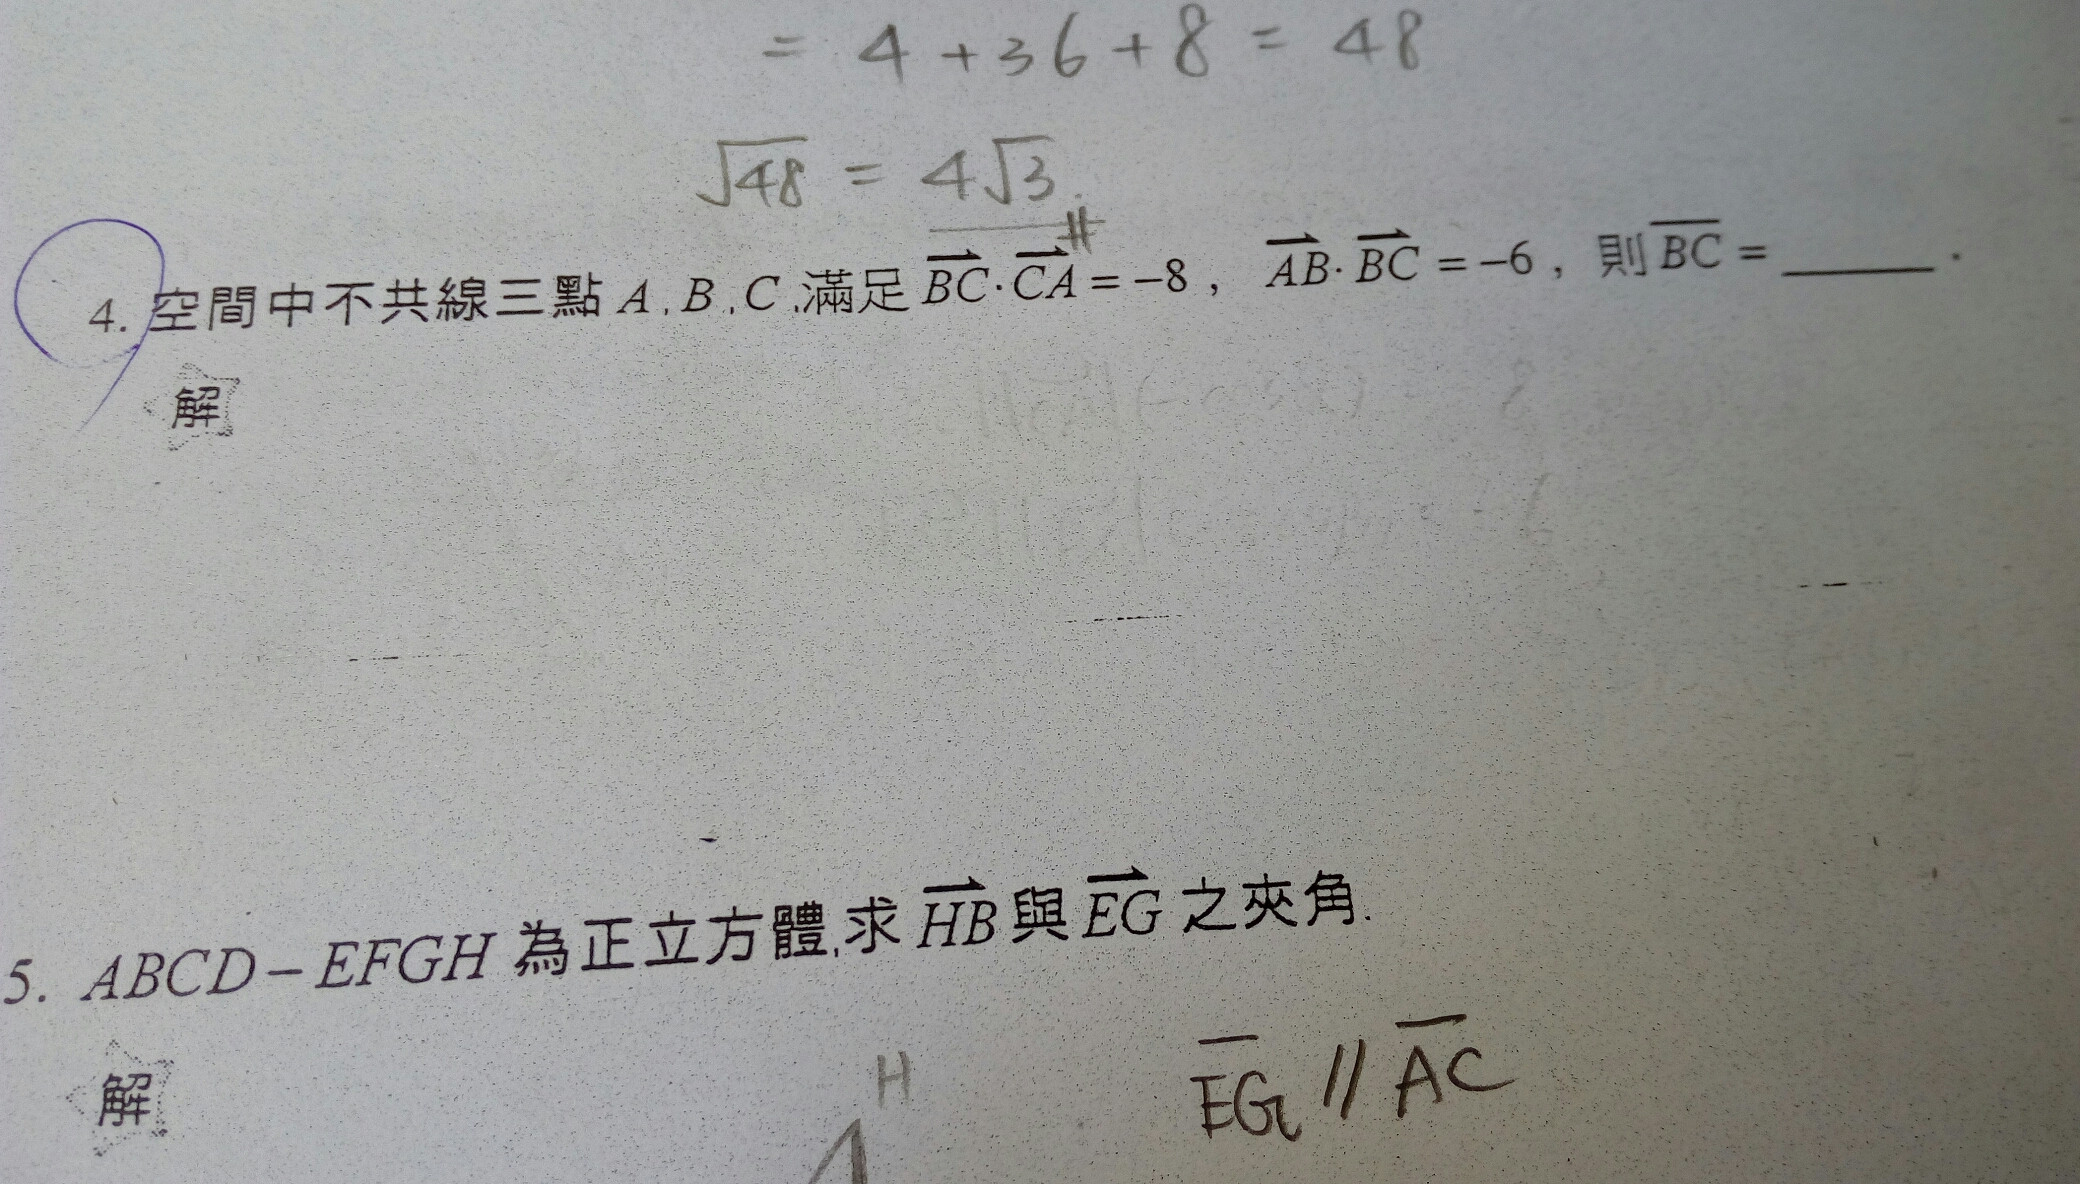 = 4 + 36 + 8 = 48
√48 = 4√3 #
4. 空間中不共線三點 A , B , C ,滿足 \overrightarrow{BC}·\overrightarrow{CA} = −8 , \overrightarrow{AB}·\overrightarrow{BC} = −6 , 則 \overline{BC} = ______ .
解
5. ABCD − EFGH 為正立方體,求 \overrightarrow{HB} 與 \overrightarrow{EG} 之夾角.
解
H
\overline{EG} // \overline{AC}